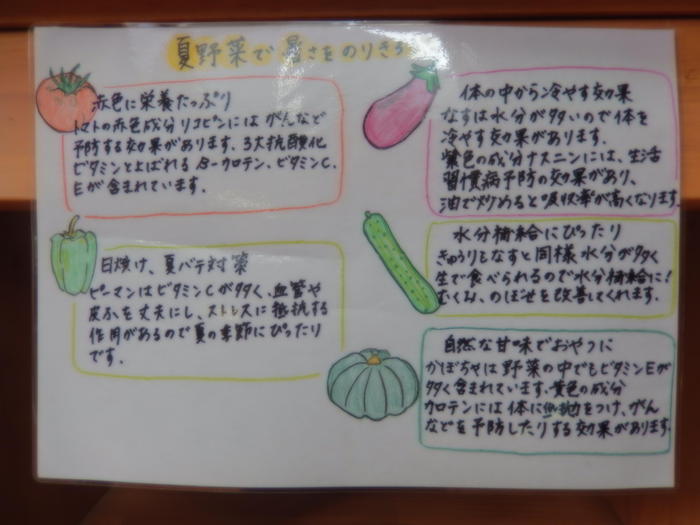 夏野菜で暑さをのりきろ
赤色に栄養たっぷり
トマトの赤色成分リコピンにはがんなど
予防する効果があります。3大抗酸化
ビタミンとよばれるβ-カロテン、ビタミンC、
Eが含まれています。
体の中から冷やす効果
なすは水分が多いので体を
冷やす効果があります。
紫色の成分ナスニンには、生活
習慣病予防の効果があり、
油で炒めると吸収率が高くなります。
日焼け、夏バテ対策
ピーマンはビタミンCが多く、血管や
皮ふを丈夫にし、ストレスに抵抗する
作用があるので夏の季節にぴったり
です。
水分補給にぴったり
きゅうりもなすと同様水分が多く
生で食べられるので水分補給に!
むくみ、のぼせを改善してくれます。
自然な甘味でおやつに
かぼちゃは野菜の中でもビタミンEが
多く含まれています。黄色の成分
カロテンには体に抵抗力をつけ、がん
などを予防したりする効果があります。